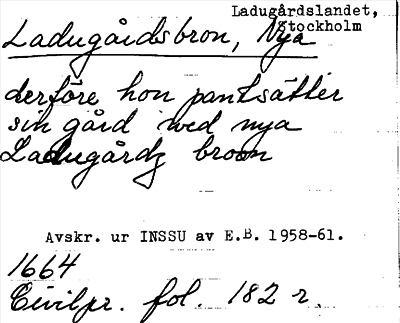 Ladugårdslandet,
Stockholm
Ladugårdsbron, Nya
derföre hon pantsätter
sin gård wed nya
Ladugårdz broon
Avskr. ur INSSU av E.B. 1958-61.
1664
Civilpr. fol. 182 r.